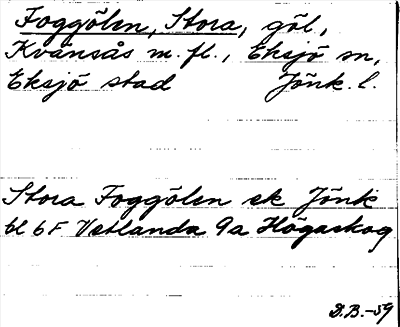 Foggölen, Stora, göl,
Kvänsås m.fl., Eksjö sn,
Eksjö stad Jönk. l.
Stora Foggölen ek Jönk
bl 6F Vetlanda 9a Högaskog
D.B.-59